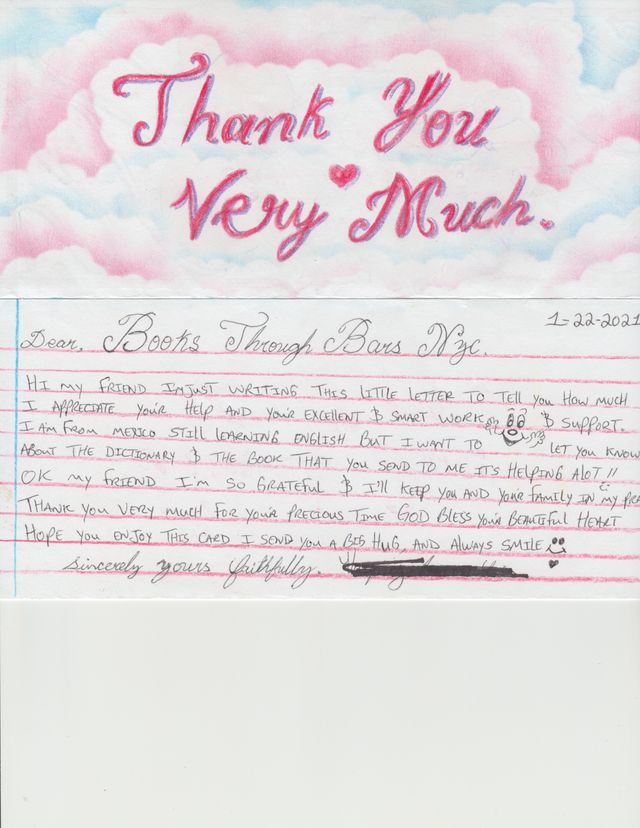 Thank You
Very Much.
1-22-2021
Dear, Books Through Bars Nyc.
Hi my friend Im just writing this little letter to tell you how much
I appreciate you'r help and you'r excellent & smart work & support.
I am from Mexico still learning English but I want to let you know
about the dictionary & the book that you send to me it's helping alot!!
OK my friend I'm so grateful & I'll keep you and your family in my
Thank you very much for you'r precious time God bless you'r beautiful heart
Hope you enjoy this card I send you a big hug, and always smile
Sincerely yours faithfully.